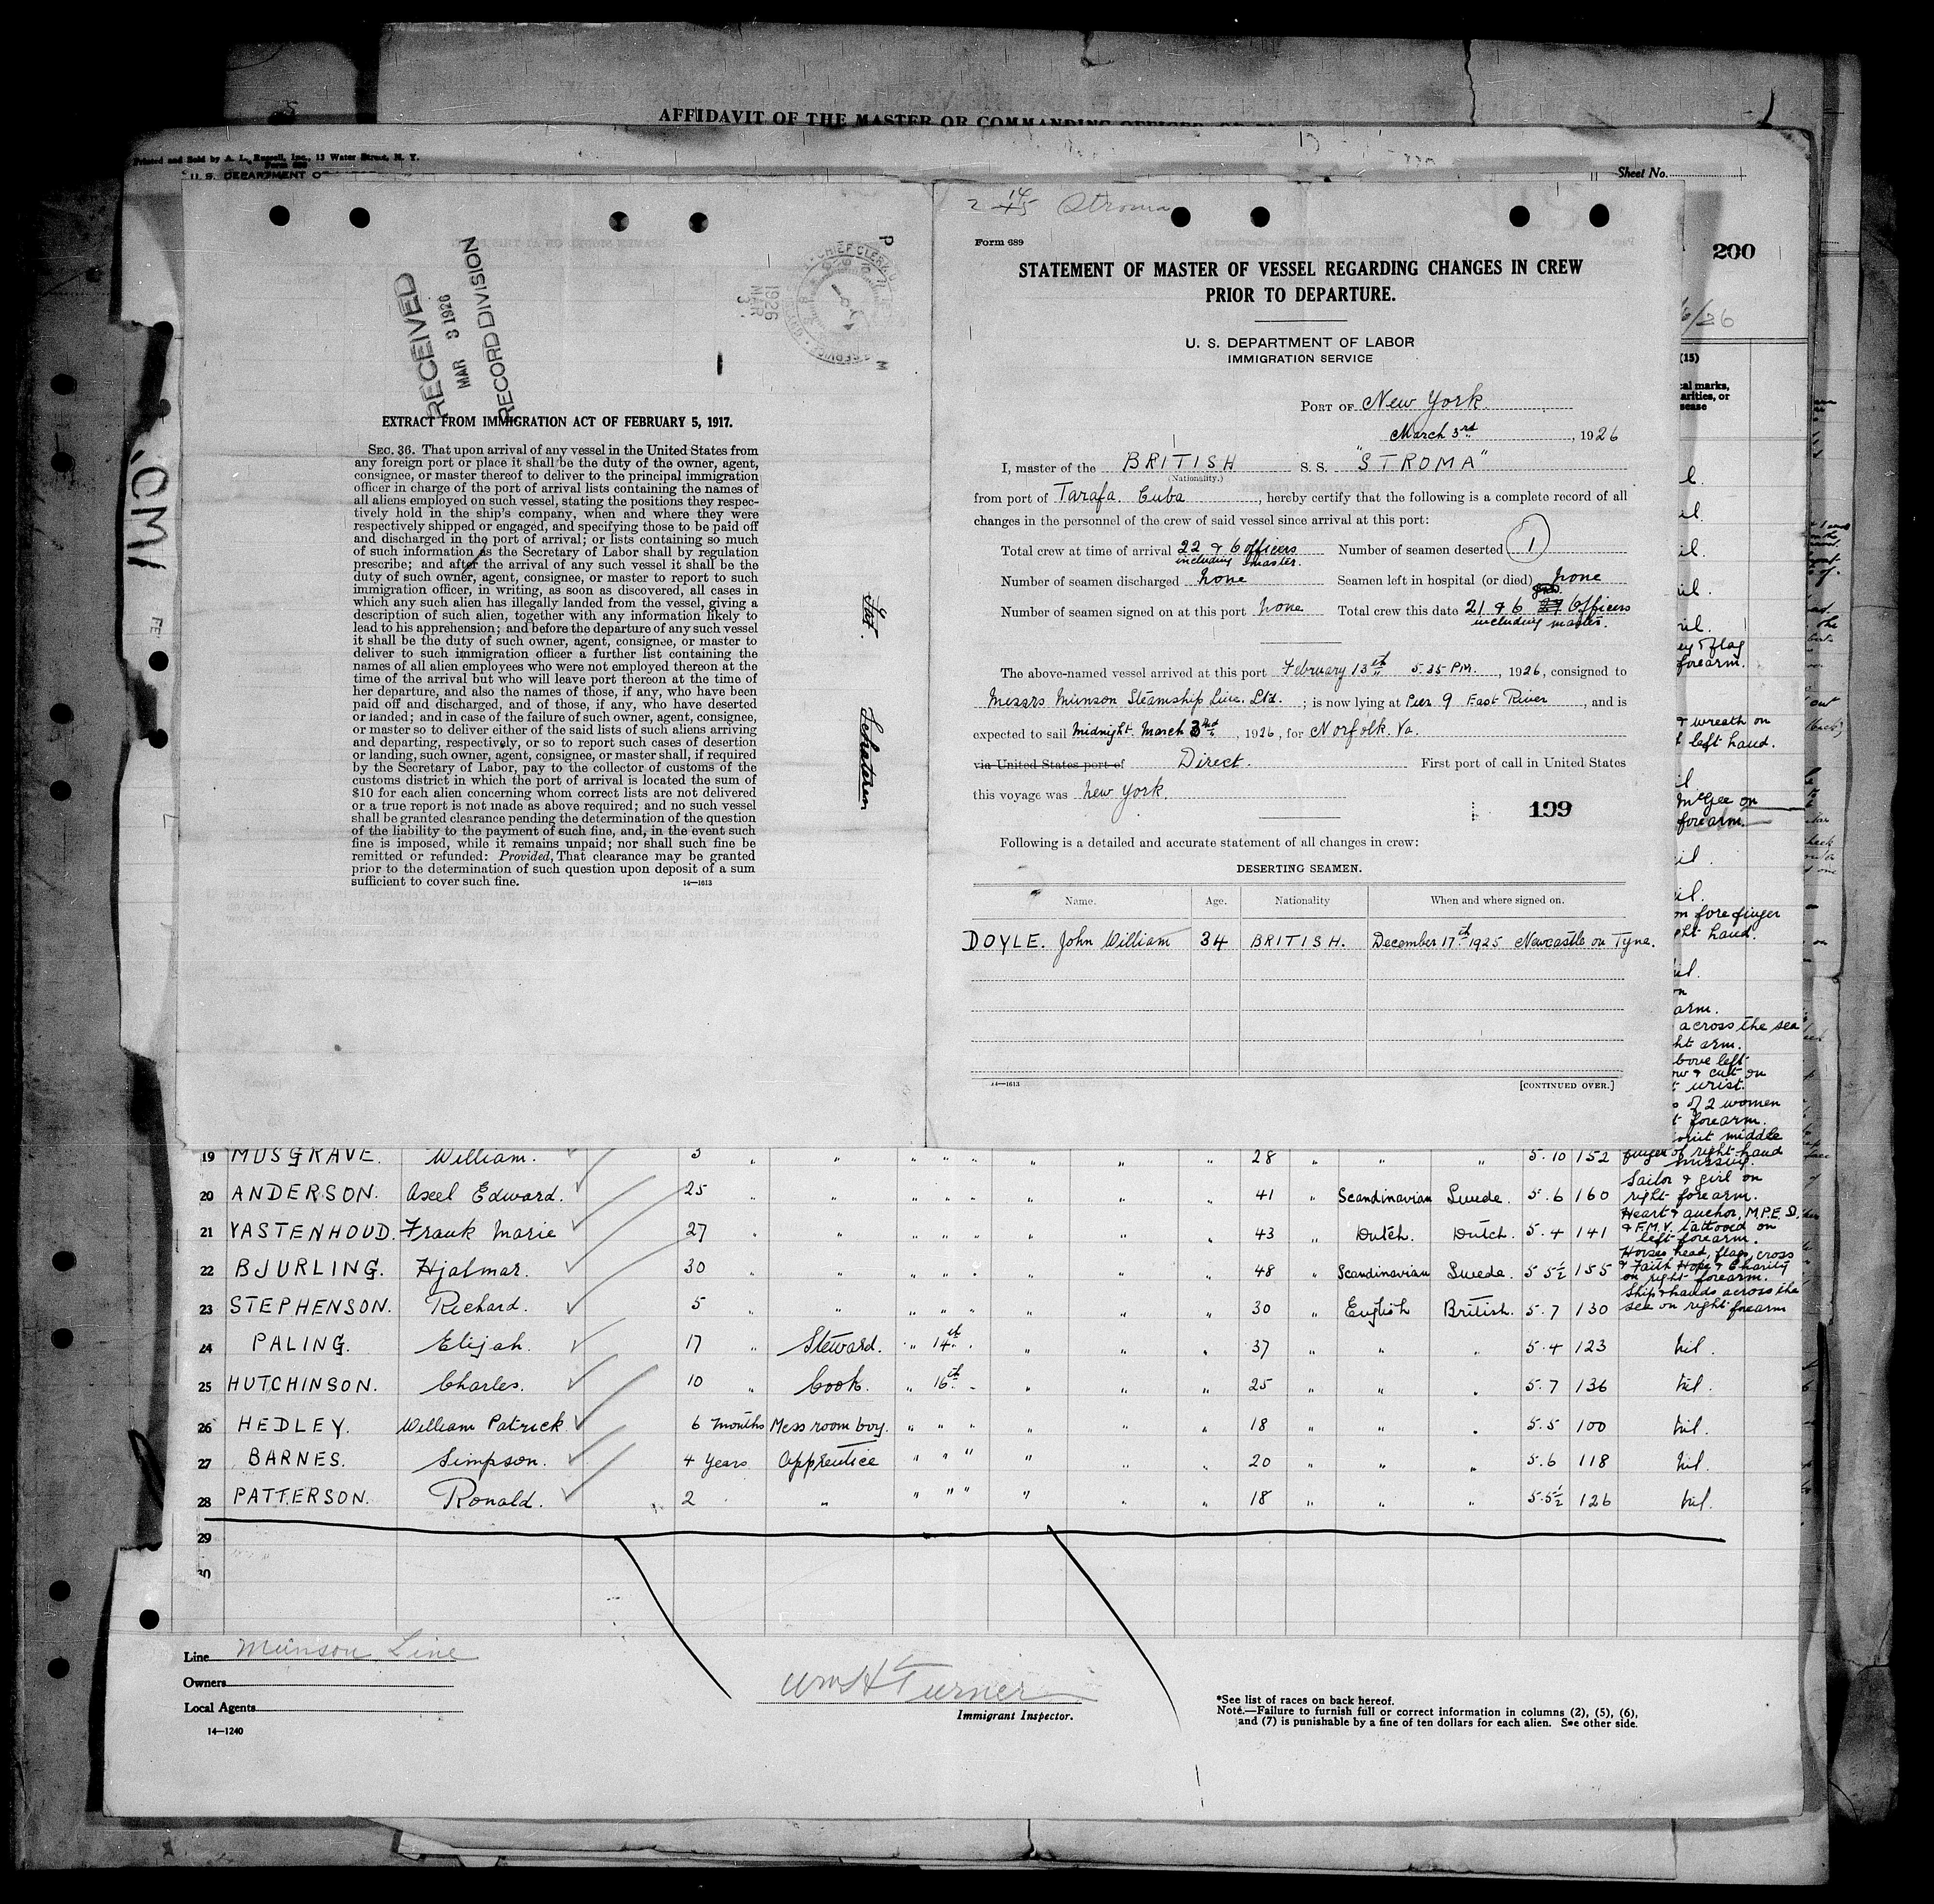 AFFIDAVIT OF THE MASTER OR COMMANDING OFFICER
Printed and Sold by A. L. Russell, Inc., 13 Water Street, N. Y.
Form 689
U. S. DEPARTMENT O
Sheet No.
200
RECEIVED
MAR 3 1926
RECORD DIVISION
1926
MAR
3
P
M
EXTRACT FROM IMMIGRATION ACT OF FEBRUARY 5, 1917.
SEC. 36. That upon arrival of any vessel in the United States from
any foreign port or place it shall be the duty of the owner, agent,
consignee, or master thereof to deliver to the principal immigration
officer in charge of the port of arrival lists containing the names of
all aliens employed on such vessel, stating the positions they respec-
tively hold in the ship's company, when and where they were
respectively shipped or engaged, and specifying those to be paid off
and discharged in the port of arrival; or lists containing so much
of such information as the Secretary of Labor shall by regulation
prescribe; and after the arrival of any such vessel it shall be the
duty of such owner, agent, consignee, or master to report to such
immigration officer, in writing, as soon as discovered, all cases in
which any such alien has illegally landed from the vessel, giving a
description of such alien, together with any information likely to
lead to his apprehension; and before the departure of any such vessel
it shall be the duty of such owner, agent, consignee, or master to
deliver to such immigration officer a further list containing the
names of all alien employees who were not employed thereon at the
time of the arrival but who will leave port thereon at the time of
her departure, and also the names of those, if any, who have been
paid off and discharged, and of those, if any, who have deserted
or landed; and in case of the failure of such owner, agent, consignee,
or master so to deliver either of the said lists of such aliens arriving
and departing, respectively, or so to report such cases of desertion
or landing, such owner, agent, consignee, or master shall, if required
by the Secretary of Labor, pay to the collector of customs of the
customs district in which the port of arrival is located the sum of
$10 for each alien concerning whom correct lists are not delivered
or a true report is not made as above required; and no such vessel
shall be granted clearance pending the determination of the question
of the liability to the payment of such fine, and, in the event such
fine is imposed, while it remains unpaid; nor shall such fine be
remitted or refunded: Provided, That clearance may be granted
prior to the determination of such question upon deposit of a sum
sufficient to cover such fine.
14—1613
Stroma
Form 689
STATEMENT OF MASTER OF VESSEL REGARDING CHANGES IN CREW
PRIOR TO DEPARTURE.
U. S. DEPARTMENT OF LABOR
IMMIGRATION SERVICE
PORT OF New York
March 3rd, 1926
I, master of the BRITISH S. S. "STROMA"
(Nationality.)
from port of Tarafa. Cuba, hereby certify that the following is a complete record of all
changes in the personnel of the crew of said vessel since arrival at this port:
Total crew at time of arrival 22 & 6 officers including master. Number of seamen deserted 1
Number of seamen discharged none Seamen left in hospital (or died) none
Number of seamen signed on at this port none Total crew this date 21 & 6 officers including master.
The above-named vessel arrived at this port February 13th 5.35 PM., 1926, consigned to
Messrs Munson Steamship Line. Ltd. ; is now lying at Pier 9 East River, and is
expected to sail midnight March 3rd, 1926, for Norfolk. Va.
via United States port of Direct. First port of call in United States
this voyage was New York.
199
Following is a detailed and accurate statement of all changes in crew:
DESERTING SEAMEN.
Name. Age. Nationality When and where signed on.
DOYLE. John William 34 BRITISH. December 17th 1925 Newcastle on Tyne.
14—1613
[CONTINUED OVER.]
(15)
& wreath on
left hand.
McGee on
forearm.
on forefinger
hand.
arm.
across the sea
arm.
left
& cut on
wrist.
of 2 women
forearm.
middle
19 MUSGRAVE. William. 3 " " " " " " " " 28 " " " 5.10 152 finger of right hand missing.
20 ANDERSON. Axel Edward. 25 " " " " " " " 41 " Scandinavian Swede. 5.6 160 Sailor & girl on right forearm.
21 VASTENHOUD. Frank Marie 27 " " " " " " " 43 " Dutch. Dutch. 5.4 141 Heart & anchor, M.P.E.D. & F.M.V. tattooed on left forearm.
22 BJURLING. Hjalmar. 30 " " " " " " " 48 " Scandinavian Swede. 5 5½ 155 Horses head, flags, cross & Faith Hope & Charity on right forearm.
23 STEPHENSON. Richard. 5 " " " " " " " 30 " English British. 5.7 130 Ship & hands across the sea on right forearm
24 PALING. Elijah. 17 " Steward. " 14th " " " " 37 " " " 5.4 123 Nil.
25 HUTCHINSON. Charles. 10 " Cook. " 16th " " " " 25 " " " 5.7 136 Nil.
26 HEDLEY. William Patrick 6 months Mess room boy. " " " " " " 18 " " " 5.5 100 Nil.
27 BARNES. Simpson. 4 years Apprentice " " " " " " 20 " " " 5.6 118 Nil.
28 PATTERSON. Ronald. 2 " " " " " " " " 18 " " " 5.5½ 126 Nil.
29
30
Line Munson Line
Owners
Local Agents
14—1240
Wm H Turner
Immigrant Inspector.
*See list of races on back hereof.
Note.—Failure to furnish full or correct information in columns (2), (5), (6),
and (7) is punishable by a fine of ten dollars for each alien. See other side.